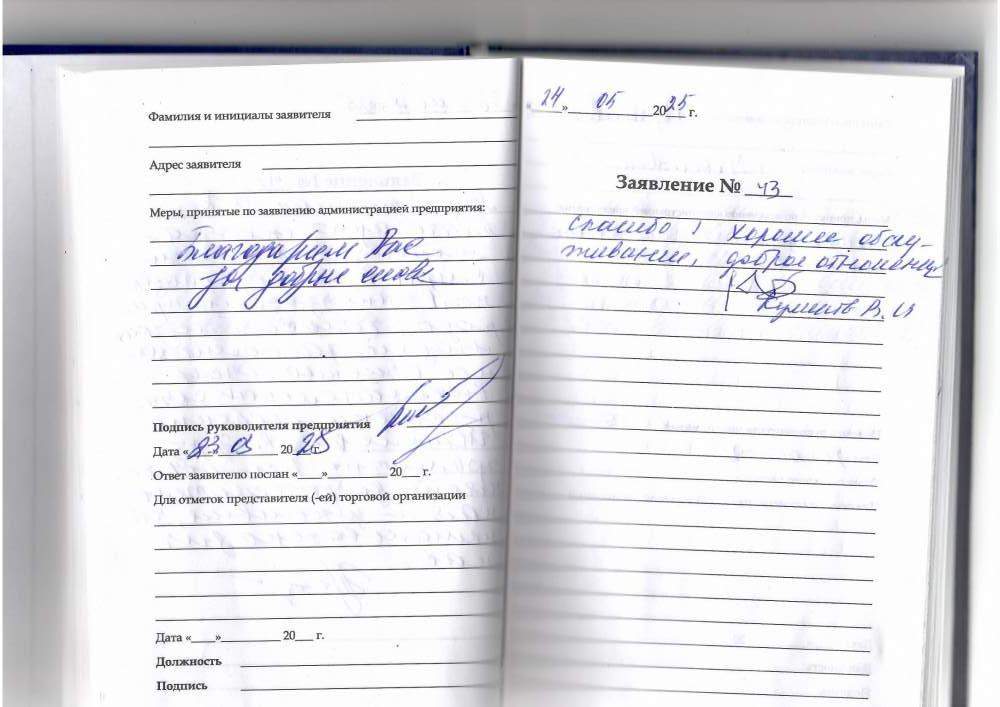 Фамилия и инициалы заявителя
Адрес заявителя
Меры, принятые по заявлению администрацией предприятия:
Благодарим Вас
за добрые слова
Подпись руководителя предприятия
Дата «23» 03 2025 г.
Ответ заявителю послан «____»__________ 20___ г.
Для отметок представителя (-ей) торговой организации
Дата «____»__________ 20___ г.
Должность
Подпись
«24» 05 2025 г.
Заявление № 43
Спасибо! хорошее обслу-
живание, доброе отношение
В. И